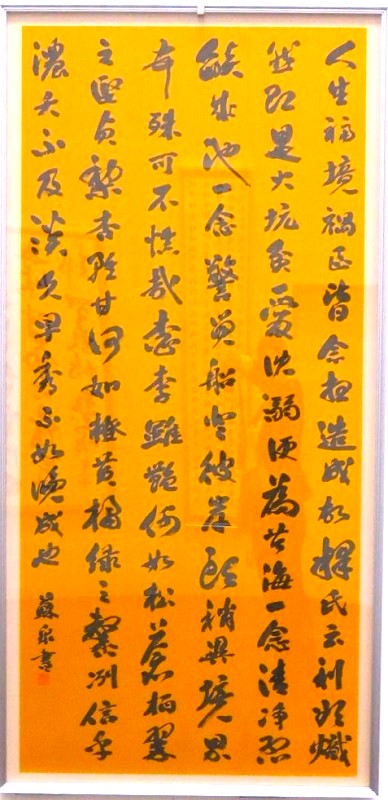 人生福境禍區皆念想造成故釋氏云利欲熾
然即是火坑貪愛沈溺便為苦海一念清净烈
燄成池一念驚覺船登彼岸頭稍異境界
頓殊可不慎哉桃李雖艷何如松蒼柏翠
之堅貞梨杏雖甘何如橙黄橘綠之馨冽信乎
濃夭不及淡久早秀不如晚成也
蘇泉書